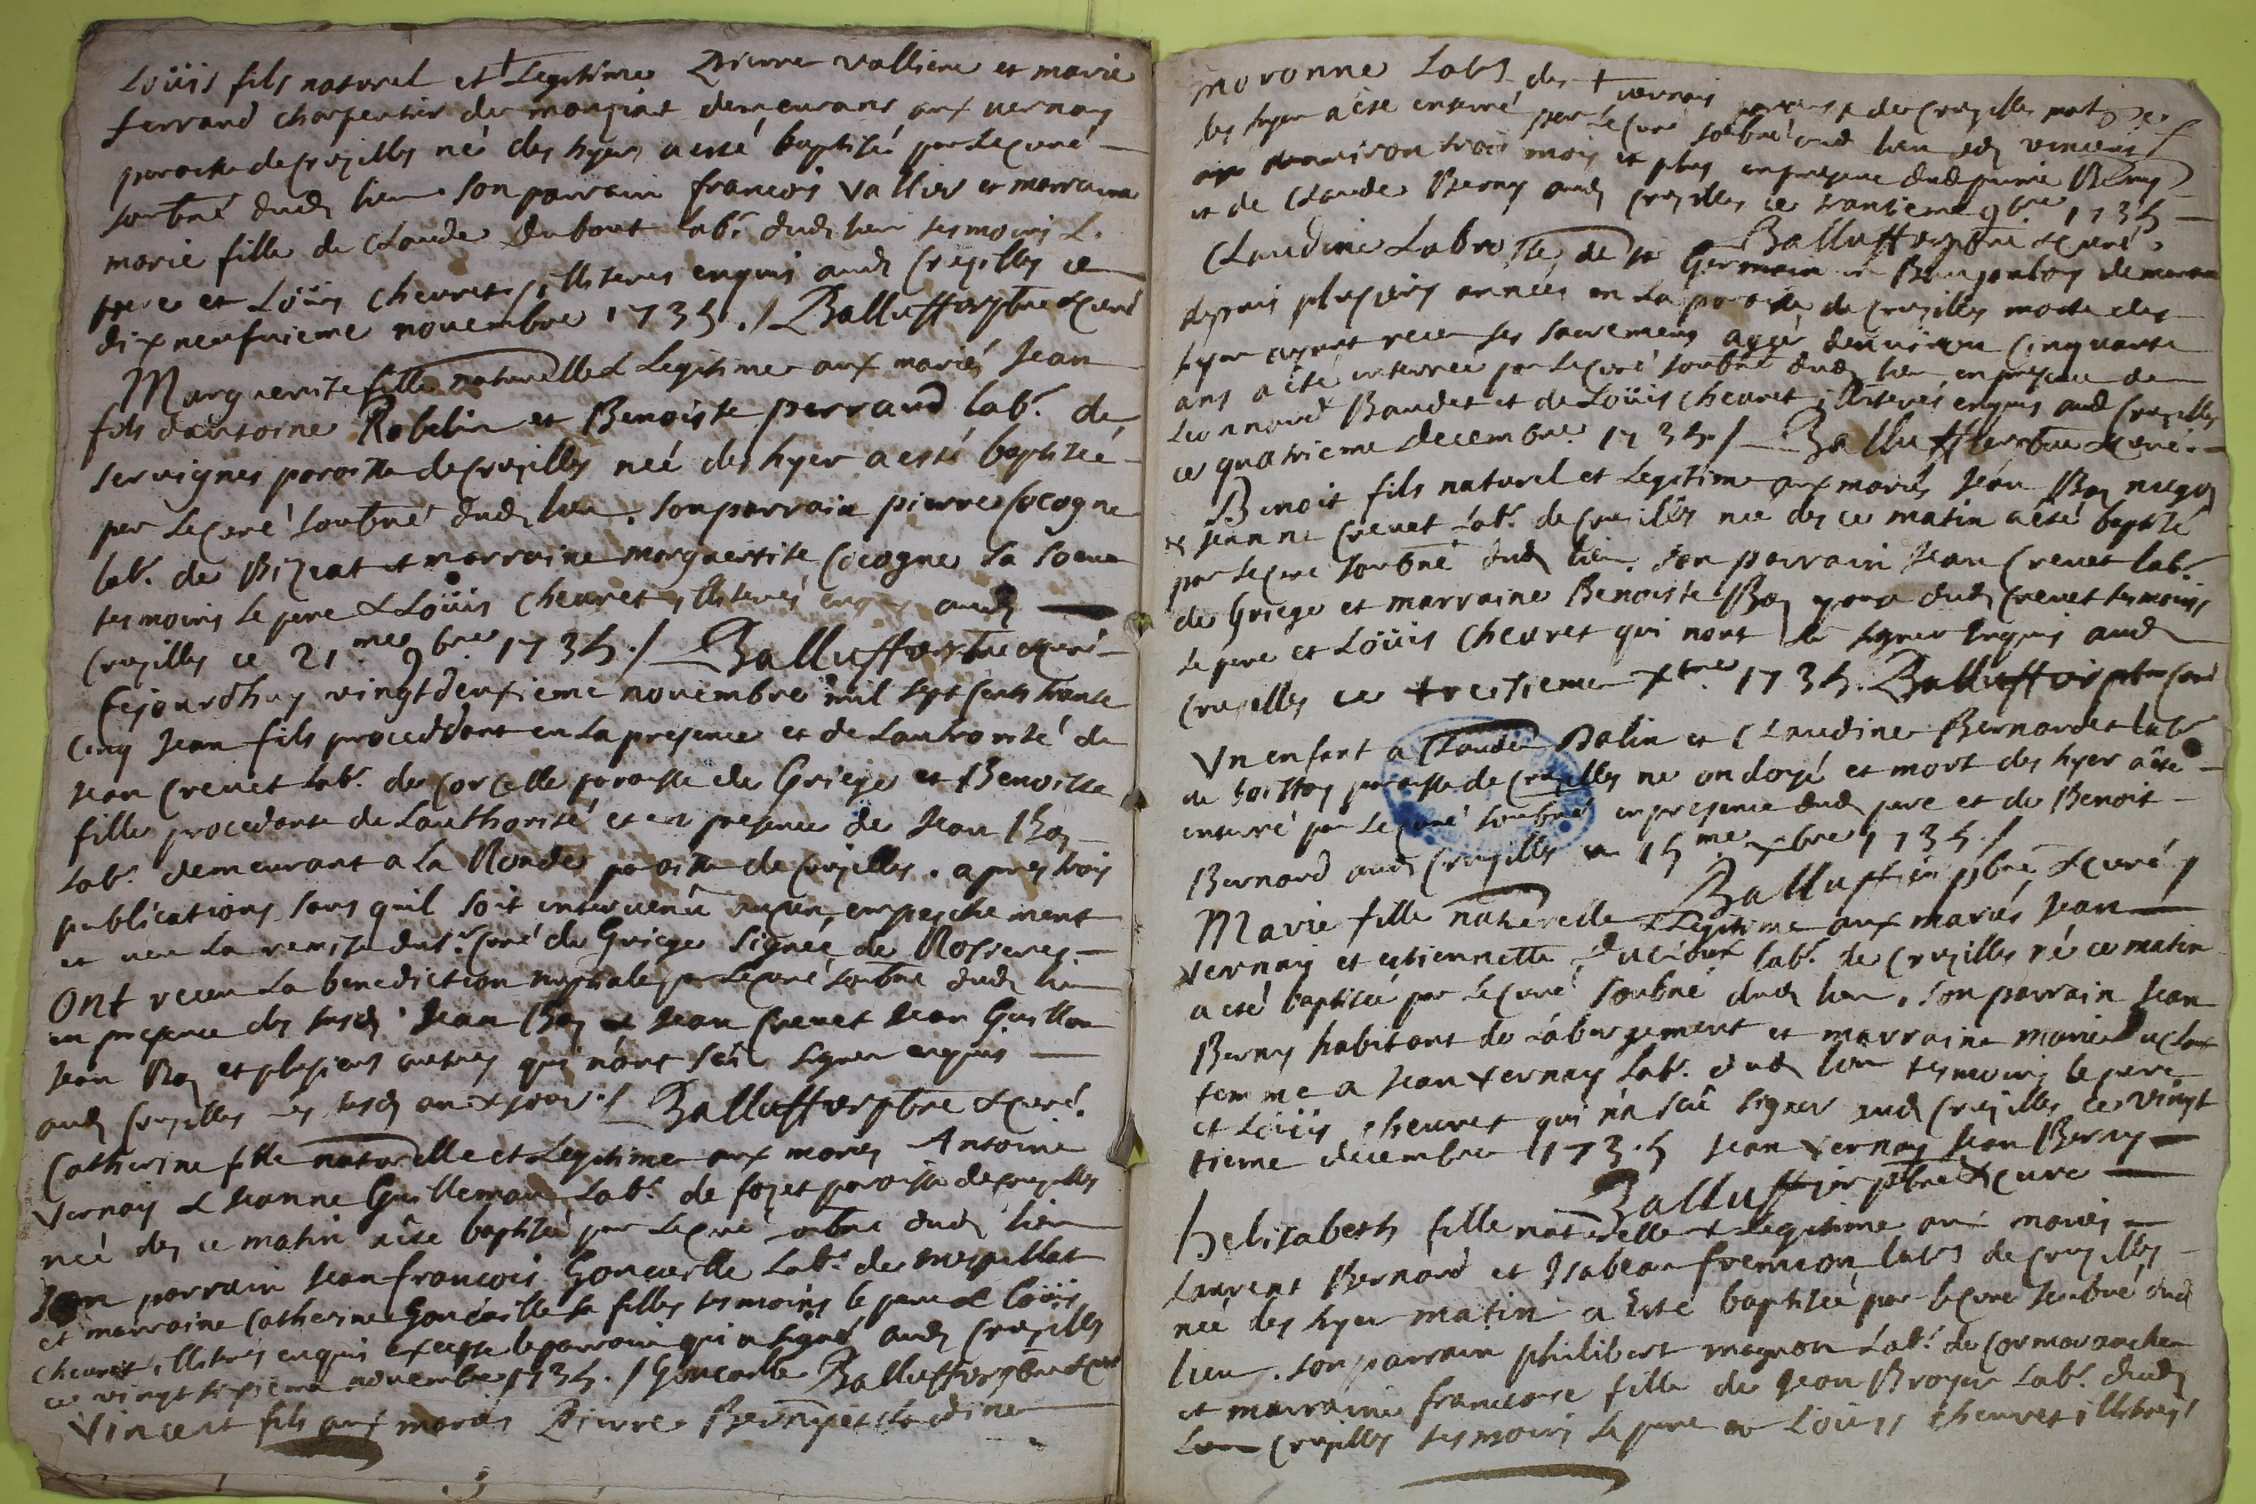 Loüis fils naturel et Legitime Pierre valliere et marie
ferrand charpentier de demeurans aux vernay
paroisse de Crusilles né des hyer a esté baptisé par le curé
soubné dud lieu son parrain françois vallier et marraine
marie fille de Claude Dubout lab.r dud lieu tesmoins L.
pere et Loüis Chevret illiteres enquis aud Crusilles ce
dix neufvieme novembre 1735 ./ Balluffier pbre & curé
Marguerite fille naturelle & Legitime aux mariés Jean
fils dantoine Robelin et Benoiste perraud lab.r de
servignes paroisse de Crusilles née des hyer a esté baptisée
par le curé soubné dud lieu . son parrain pierre Cocogne
lab.r de Biziat et marraine marguerite Cocogne sa soeur
tesmoins le pere & Loüis Chevret illiterés enquis aud
Crusilles ce 21.me 9bre 1735 ./ Balluffier pbre & curé
Cejourdhuy vingtdeuxieme novembre mil sept cents trente
Cinq Jean fils proceddant en la presence et de Lauthorité de
Jean Crevet lab.r de Corcelle paroisse de Griege et Benoiste
fille procedante de Lauthorité et en presence de Jean Boz
lab.r demeurant a la Ronde paroisse de Crusilles . apres trois
publications sans quil soit intervenû aucun empeschement
et veu La remise du s.r Curé de Griege signée de Rosieres
Ont receu La benediction nuptiale par le curé soubné dud lieu
en presence des susd Jean Boz & Jean Crevet Jean Guillon
Jean Boz et plusieurs autres qui nont sceu signer enquis
aud Crusilles les susd an & jour ./ Balluffier pbre & curé.
Catherine fille naturelle et Legitime aux mariés Antoine
vernay & Jeanne Guilleman Lab.r de paroisse de Crusilles
née des ce matin a esté baptisée par le curé soubné dud lieu
son parrain Jean françois Goncaille Lab.r de
et marraine Catherine Goncaille sa fille tesmoins le pere & Loüis
chevret illiterés enquis excepté le parrain qui a signé aud Crusilles
ce vingt sixieme novembre 1735 ./ Goncaille Balluffier pbre & curé
Vincent fils aux mariés Pierre Berny et Claudine
moronne Lab.rs des vernais paroisse de Crusilles mort
des hyer a esté enterré par le curé soubné dud lieu led vincent
age denviron trois mois et plus en presence dud pierre Berny
et de Claude Berny aud Crusilles ce trantieme 9bre 1735
Balluffier pbre & curé
Claudine Labrosse de st Germain en demeurant
depuis plusieurs années en La paroisse de Crusilles morte des
hyer ayant receu ses sacremens agée denviron Cinquante
ans a été enterrée par le curé soubné dud lieu en presence de
Leonnard Baudet et de Loüis Chevret illiterés enquis aud Crusilles
ce quatrieme decembre 1735 ./ Balluffier pbre & curé
Benoit fils naturel et Legitime aux mariés Jean Boz
& Jeanne Crevet Lab.r de Crusilles née des ce matin a esté baptisé
par le curé soubné dud lieu . son parrain Jean Crevet lab.r
de Griege et marraine Benoiste Boz dud Crevet tesmoins
le pere et Loüis Chevret qui nont sû signer enquis aud
Crusilles ce treisieme xbre 1735. Balluffier pbre curé
Un enfant a Claude Palin et Claudine Bernardet lab.r
de paroisse de Crusilles ne ondoyé et mort des hyer a esté
enterré par le curé soubné en presence dud pere et de Benoit
Bernard aud Crusilles ce 15me xbre 1735 ./
Balluffier pbre & curé
Marie fille naturelle & Legitime aux mariés Jean
vernay et estiennette Duclout lab.r de Crusilles né ce matin
a esté baptisée par le curé soubné dud lieu . son parrain Jean
Berny habitant de Labergement et marraine marie Duclout
femme a Jean vernay Lab.r dud lieu tesmoins le pere
et Loüis chevret qui na sceû signer aud Crusilles ce vingt
tieme decembre 1735 Jean vernay Jean Berny
Balluffier pbre & curé
helisabeth fille naturelle & Legitime aux mariés
Laurent Bernard et Isabeau fremion lab.rs de Crusilles
née des hyer matin a esté baptisée par le curé soubné dud
lieu . son parrain philibert magnon Lab.r de Cormoranche
et marraine francoise fille de Jean Broyer Lab.r dud
Crusilles tesmoins le pere & Loüis chevret illiterés